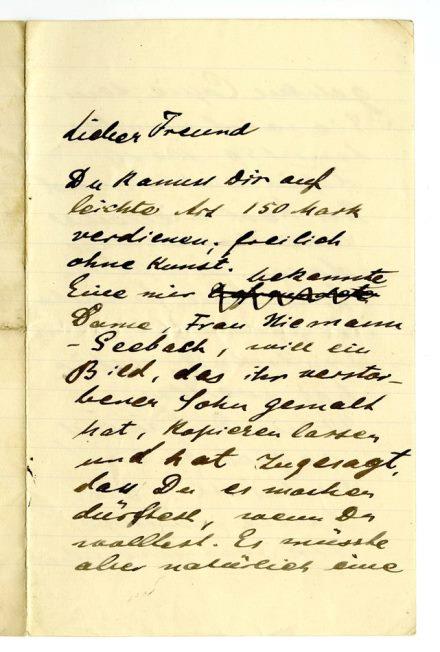 Lieber Freund
Du kannst Dir auf
leichte Art 150 Mark
verdienen, freilich
ohne Kunst.
Eine mir bekannte
Dame, Frau Niemann
- Seebach, will ein
Bild, das ihr verstor-
bener Sohn gemalt
hat, kopieren lassen
und hat zugesagt,
dass Du es machen
dürftest, wenn Du
wolltest. Es müsste
aber natürlich eine